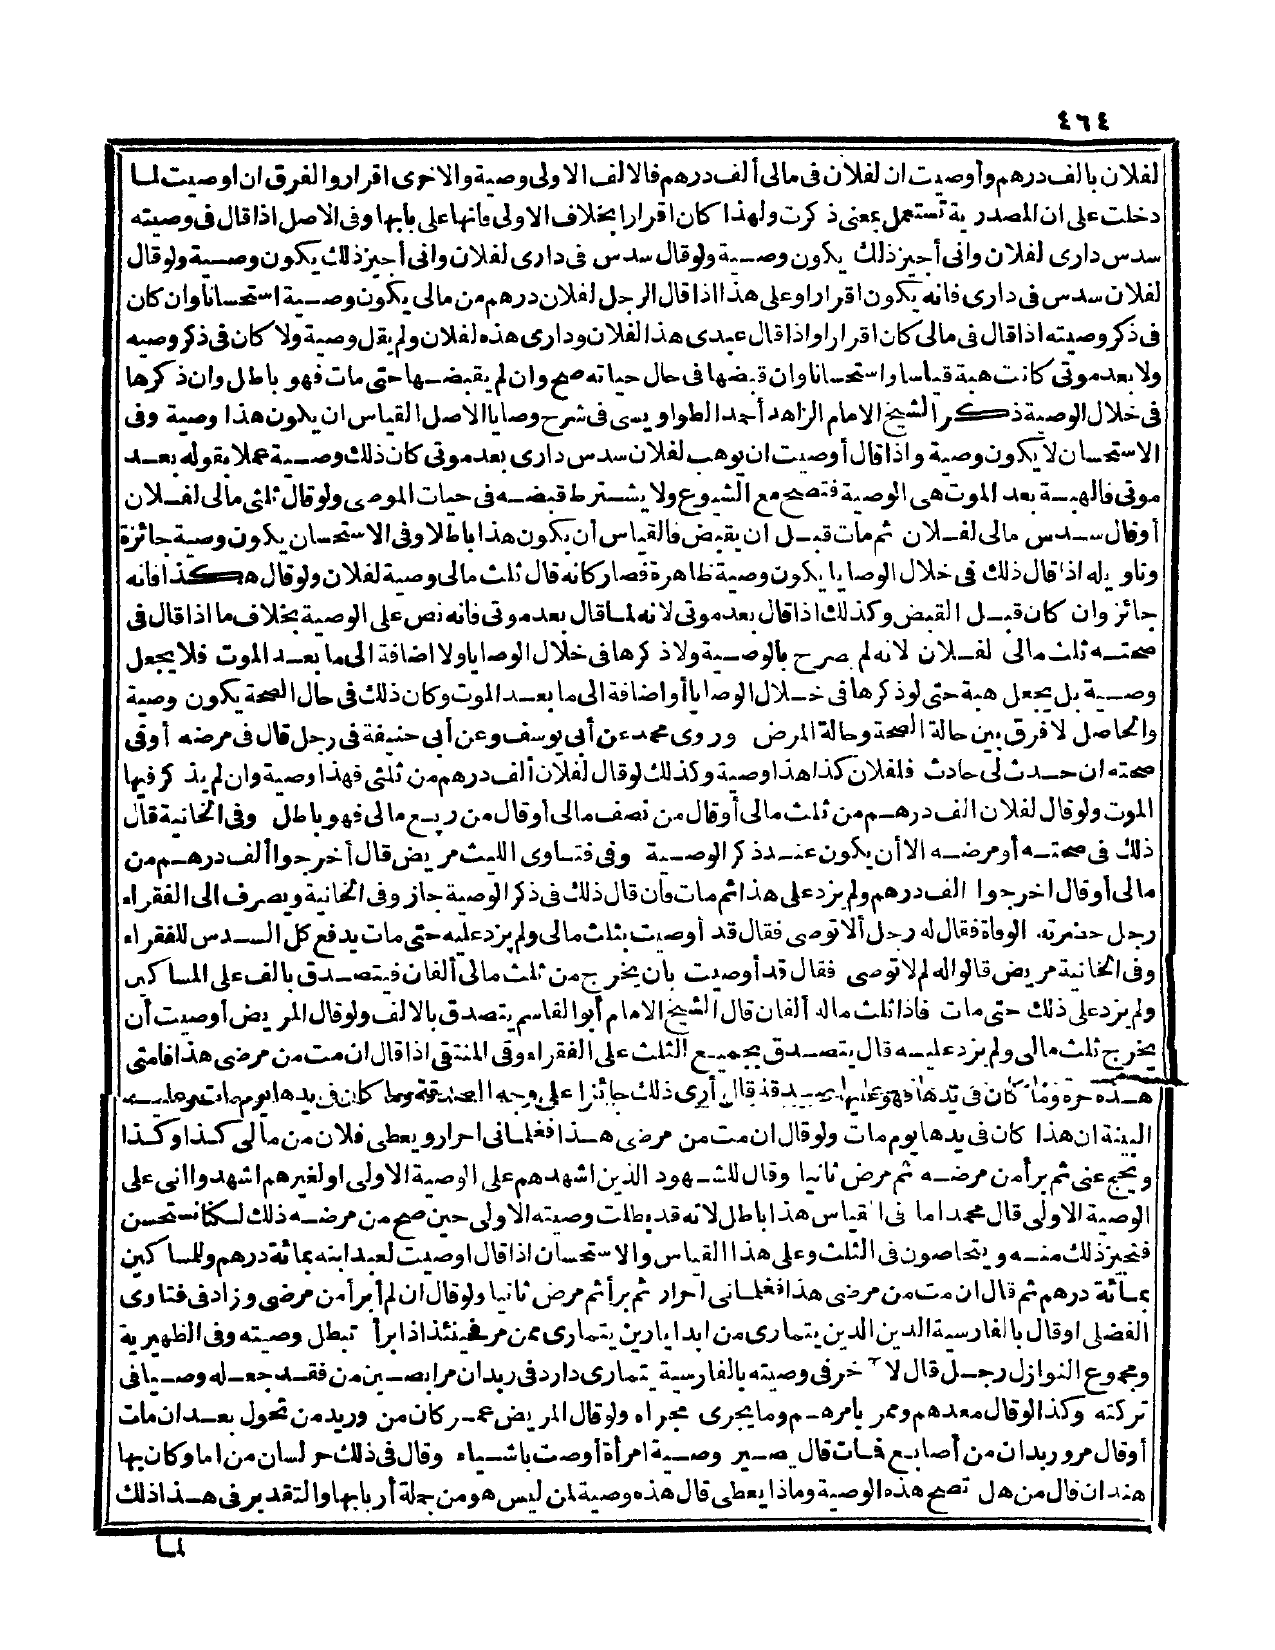 ٤٦٤
لفلان بالف درهم وأوصيت ان لفلان فى مالى ألف درهم فالالف الاولى وصية والاخرى اقرار والفرق ان اوصيت لما
دخلت على ان المصدرية تستعمل بمعنى ذكرت ولهذا كان اقرارا بخلاف الاولى فانها على بابها وفى الاصل اذا قال فى وصيته
سدس دارى لفلان وانى أجيز ذلك يكون وصية ولو قال سدس فى دارى لفلان وانى أجيز ذلك يكون وصية ولو قال
لفلان سدس فى دارى فانه يكون اقرارا وعلى هذا اذا قال الرجل لفلان درهم من مالى يكون وصية استحسانا وان كان
فى ذكر وصيته اذا قال فى مالى كان اقرارا واذا قال عبدى هذا لفلان ودارى هذه لفلان ولم يقل وصية ولا كان فى ذكر وصيه
ولا بعد موتى كانت هبة قياسا واستحسانا وان قبضها فى حال حياته صح وان لم يقبضها حتى مات فهو باطل وان ذكرها
فى خلال الوصية ذكر الشيخ الامام الزاهد أحمد الطواويسى فى شرح وصايا الاصل القياس ان يكون هذا وصية وفى
الاستحسان لا يكون وصية واذا قال أوصيت ان يوهب لفلان سدس دارى بعد موتى كان ذلك وصية عملا بقوله بعد
موتى فالهبة بعد الموت هى الوصية فتصح مع الشيوع ولا يشترط قبضه فى حيات الموصى ولو قال ثلثى مالى لفلان
أو قال سدس مالى لفلان ثم مات قبل ان يقبض فالقياس أن يكون هذا باطلا وفى الاستحسان يكون وصية جائزة
وتاويله اذا قال ذلك فى خلال الوصايا يكون وصية ظاهرة فصار كانه قال ثلث مالى وصية لفلان ولو قال هكذا فانه
جائز وان كان قبل القبض وكذلك اذا قال بعد موتى لانه لما قال بعد موتى فانه نص على الوصية بخلاف ما اذا قال فى
صحته ثلث مالى لفلان لانه لم صرح بالوصية ولا ذكرها فى خلال الوصايا ولا اضافة الى ما بعد الموت فلا يجعل
وصية بل يجعل هبة حتى لو ذكرها فى خلال الوصايا أو اضافة الى ما بعد الموت وكان ذلك فى حال الصحة يكون وصية
والحاصل لا فرق بين حالة الصحة وحالة المرض وروى محمد عن أبى يوسف وعن أبى حنيفة فى رجل قال فى مرضه أو فى
صحته ان حدث لى حادث فلفلان كذا هذا وصية وكذلك لو قال لفلان ألف درهم من ثلثى فهذا وصية وان لم يذكر فيها
الموت ولو قال لفلان الف درهم من ثلث مالى أو قال من نصف مالى أو قال من ربع مالى فهو باطل وفى الخانية قال
ذلك فى صحته أو مرضه الا أن يكون عند ذكر الوصية وفى فتاوى الليث مريض قال أخرجوا ألف درهم من
مالى أو قال اخرجوا الف درهم ولم يزد على هذا ثم مات فان قال ذلك فى ذكر الوصية جاز وفى الخانية ويصرف الى الفقراء
رجل حضرته الوفاة فقال له رجل ألا توصى فقال قد أوصيت بثلث مالى ولم يزد عليه حتى مات يدفع كل السدس للفقراء
وفى الخانية مريض قالوا له لم لا توصى فقال قد أوصيت بان يخرج من ثلث مالى ألفان فيتصدق بالف على المساكين
ولم يزد على ذلك حتى مات فاذا ثلث ماله ألفان قال الشيخ الامام أبو القاسم يتصدق بالالف ولو قال المريض أوصيت أن
يخرج ثلث مالى ولم يزد عليه قال يتصدق بجميع الثلث على الفقراء وفى المنتقى اذا قال ان مت من مرضى هذا فامتى
هذه حرة وما كان فى يدها فهو عليها صدقة قال أرى ذلك جائزا على وجه الصدقة وما كان فى يدها يوم مات وعليه
البينة ان هذا كان فى يدها يوم مات ولو قال ان مت من مرضى هذا فغلمانى احرار ويعطى فلان من مالى كذا وكذا
ويحج عنى ثم برأ من مرضه ثم مرض ثانيا وقال للشهود الذين اشهدهم على الوصية الاولى او لغيرهم اشهدوا انى على
الوصية الاولى قال محمد اما فى القياس هذا باطل لانه قد بطلت وصيته الاولى حين صح من مرضه ذلك لكنا نستحسن
فنجيز ذلك منه ويتحاصون فى الثلث وعلى هذا القياس والاستحسان اذا قال اوصيت لعبد ابنه بمائة درهم وللمساكين
بمائة درهم ثم قال ان مت من مرضى هذا فغلمانى احرار ثم برأ ثم مرض ثانيا ولو قال ان لم أبرأ من مرضى وزاد فى فتاوى
الفضلى او قال بالفارسية الدين الدين يتمارى من ابدا يارين يتمارى ممن مر فينئذ اذا برأ تبطل وصيته وفى الظهيرية
ومجموع النوازل رجل قال لآخر فى وصيته بالفارسية يتمارى دارد فر يدان مرا بصين من فقد جعله وصيا فى
تركته وكذا لو قال معدهم ومر بامرهم وما يجرى مجراه ولو قال المريض كان من وريد من تحول بعد ان مات
أو قال مرو ريدان من أصابع فمات قال وصية امرأة أوصت باشياء وقال فى ذلك حر لسان من اما وكان بها
هندان قال من هل تصح هذه الوصية وماذا يعطى قال هذه وصية لمن ليس هو من جملة أربابها والتقدير فى هذا ذلك
لما